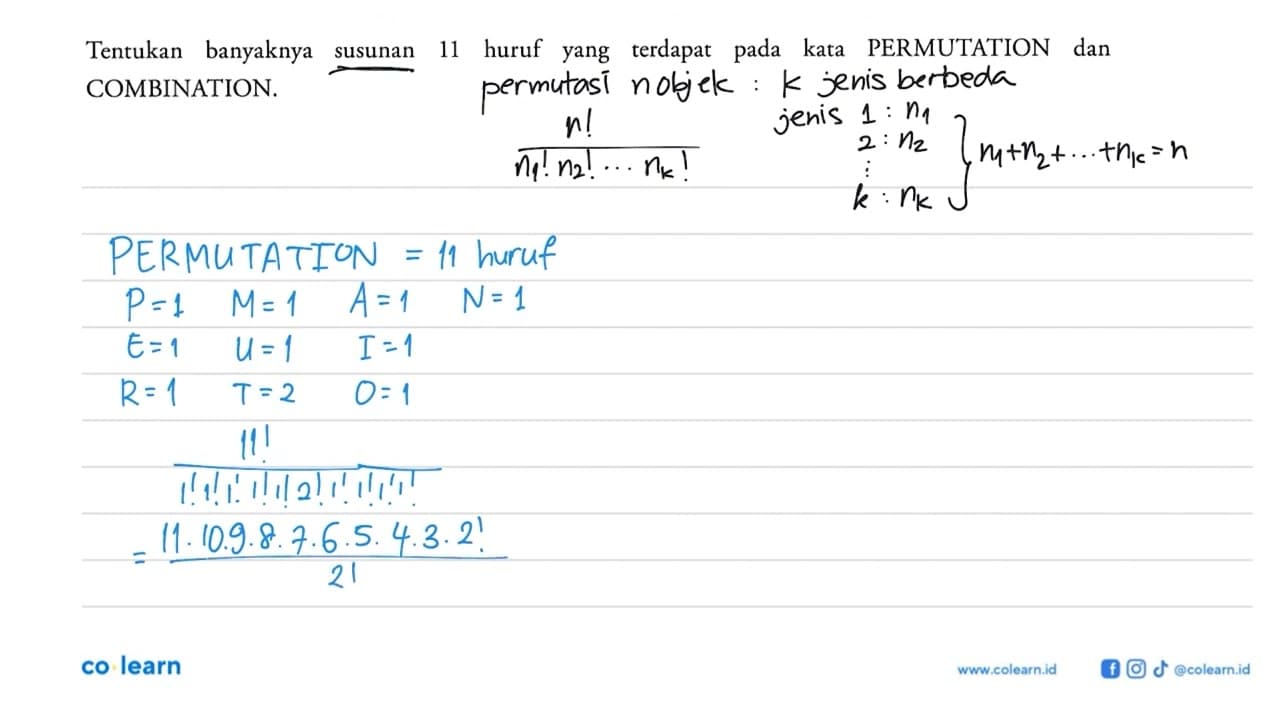 Tentukan banyaknya susunan 11 huruf yang terdapat pada kata PERMUTATION dan
COMBINATION.
permutasi n objek : k jenis berbeda
n!
n1! n2! ... nk!
jenis 1 : n1
2 : n2
⋮
k : nk
n1+n2+...+nk=n
PERMUTATION = 11 huruf
P=1 M=1 A=1 N=1
E=1 U=1 I=1
R=1 T=2 O=1
11!
1!1!1!1!1!2!1!1!1!1!
= 11.10.9.8.7.6.5.4.3.2!
2!
co·learn
www.colearn.id @colearn.id